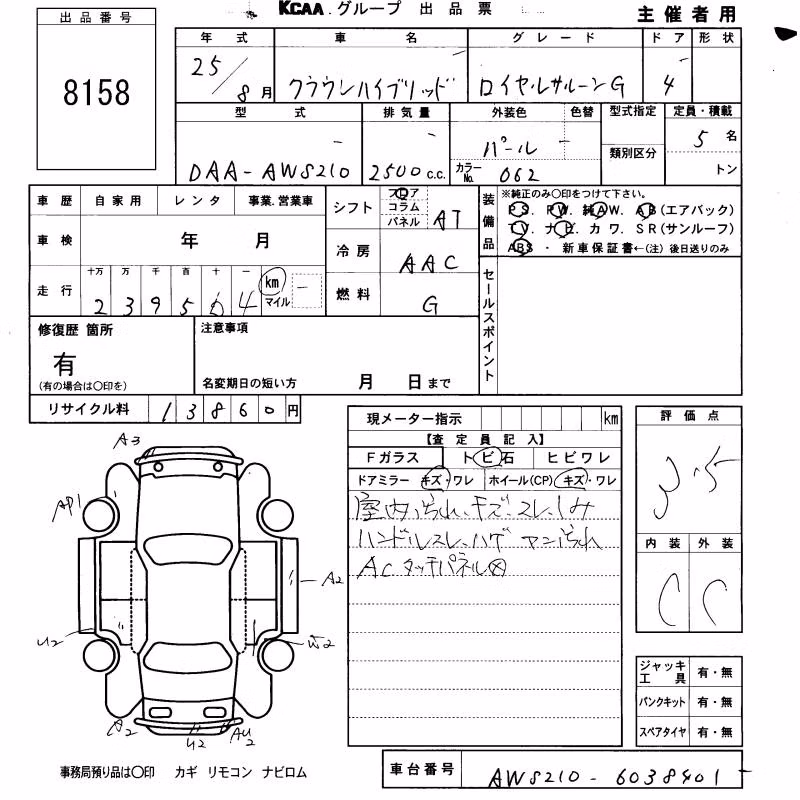 KCAA.グループ 出品票
主催者用
出品番号
8158
年式 車名 グレード ドア 形状
25/8月 クラウンハイブリッド ロイヤルサルーンG 4
型式 排気量 外装色 色替 型式指定 定員・積載
DAA-AWS210 2500c.c. パール 5名
カラーNo. 062 類別区分 トン
車歴 自家用 レンタ 事業.営業車
車検 年 月
走行 十万 万 千 百 十 一
239504 km マイル
シフト フロア コラム パネル AT
冷房 AAC
燃料 G
装備品 ※純正のみ○印をつけて下さい。
PS. PW. 純AW. AB(エアバック)
TV. ナビ. カワ. SR(サンルーフ)
ABS ・ 新車保証書←(注) 後日送りのみ
セールスポイント
修復歴 箇所
有
(有の場合は○印を)
注意事項
名変期日の短い方 月 日まで
リサイクル料 13860円
現メーター指示 km
【査定員記入】
Fガラス トビ石 ヒビワレ
ドアミラー キズ・ワレ ホイール(CP) キズ・ワレ
室内汚れ、キズ、スレ、しみ
ハンドルスレ、ハゲ マン汚れ
ACタッチパネル⊗
評価点
3.5
内装 外装
C C
A3
AP1
A2
U2
W2
A2
U2
AU2
ジャッキ工具 有・無
パンクキット 有・無
スペアタイヤ 有・無
事務局預り品は○印 カギ リモコン ナビロム
車台番号 AWS210-6038401